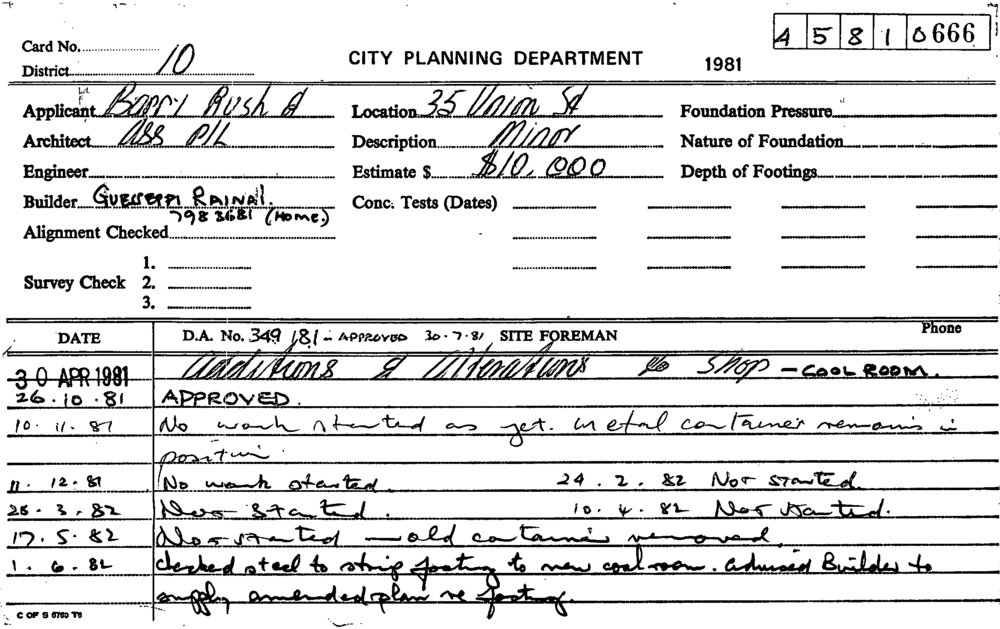 Card No. 4 5 8 1 0666
District 10 CITY PLANNING DEPARTMENT 1981
Applicant Barry Rush & Location 35 Union St Foundation Pressure
Architect Ass P/L Description Minor Nature of Foundation
Engineer Estimate $ $10,000 Depth of Footings
Builder Conc. Tests (Dates)
7983681 (Home.)
Alignment Checked
1.
Survey Check 2.
3.
DATE D.A. No. 349/81 - APPROVED 30.7.81 SITE FOREMAN Phone
30 APR 1981 Additions & Alterations to Shop - COOL ROOM.
26.10.81 APPROVED.
10.11.81 No work started as yet. metal container remains in
position.
11.12.81 No work started. 24.2.82 Not started.
25.3.82 Not started. 10.4.82 Not started.
17.5.82 Not started - old container removed.
1.6.82 Checked steel to strip footing to new coolroom. Advised Builder to
supply amended plan re footing.
C OF S 6760 T6